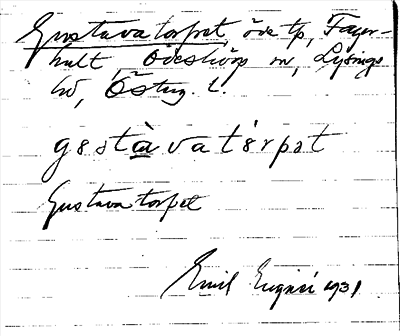 Gustavatorpet, öde tp, Fager-
hult, Ödeshög sn, Lysings
hd, Östug. l.
gɵstàvatɵ́rpət
Gustavatorpet
Emil 1931